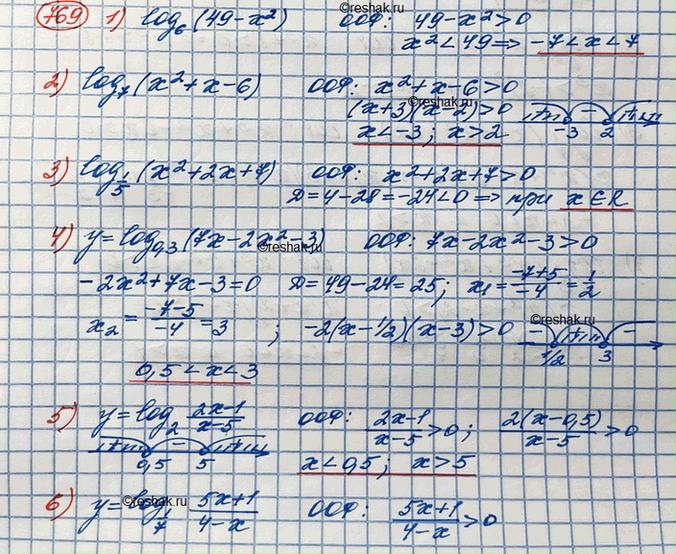 769 1) log₆(49-x²) ООФ: 49-x²>0
x²<49 => -7<x<7
2) log₇(x²+x-6) ООФ: x²+x-6>0
©reshak.ru
(x+3)(x-2)>0 -3 2
x<-3; x>2
3) log_{1/5}(x²+2x+7) ООФ: x²+2x+7>0
Д=4-28=-24<0 => при x∈R
4) y=log_{0,3}(7x-2x²-3) ООФ: 7x-2x²-3>0
©reshak.ru
-2x²+7x-3=0 Д=49-24=25; x₁=(-7+5)/(-4)=1/2
x₂=(-7-5)/(-4)=3; -2(x-1/2)(x-3)>0 1/2 3
©reshak.ru
0,5<x<3
5) y=log₂ (2x-1)/(x-5) ООФ: (2x-1)/(x-5)>0; 2(x-0,5)/(x-5)>0
0,5 5 x<0,5; x>5
6) y=log_{1/7} (5x+1)/(4-x) ООФ: (5x+1)/(4-x)>0
©reshak.ru